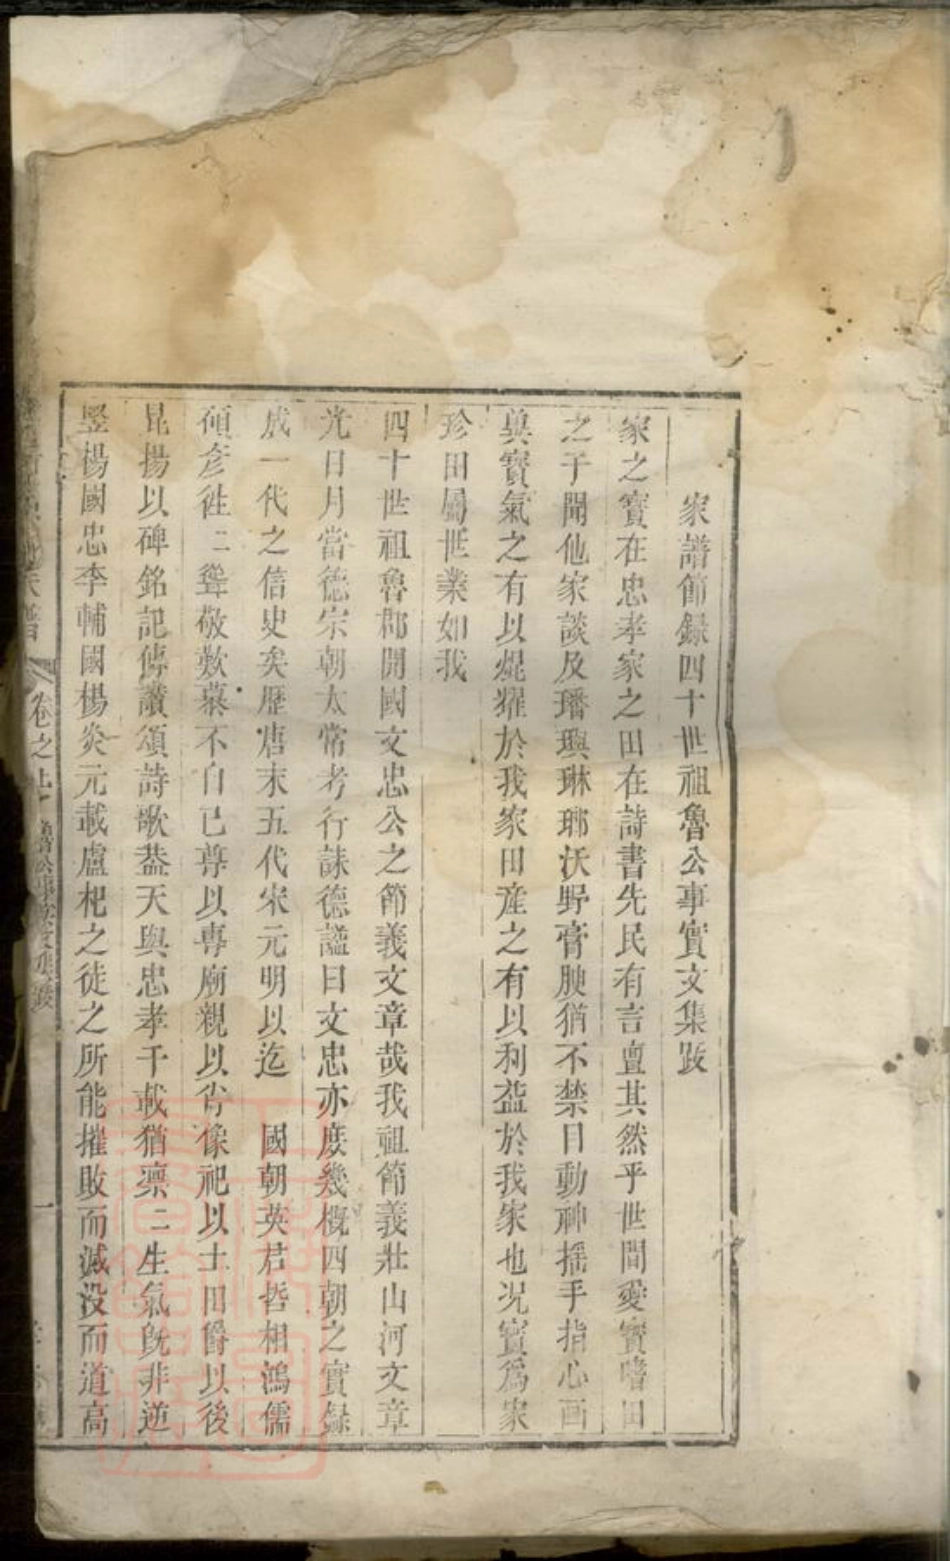 家譜節錄四十世祖魯公事實文集跋
家之寶在忠孝家之田在詩書先民有言亶其然乎世間愛寶嗜田
之子聞他家談及璠璵琳瑯沃野膏腴猶不禁目動神摇手指心画
與寶氣之有以焜燿於我家田産之有以利益於我家也况寳爲家
珍田屬世業如我
四十世祖魯郡開國文忠公之節義文章哉我祖節義壯山河文章
光日月當德宗朝太常考行誄德謚曰文忠亦庶幾概四朝之實録
成一代之信史矣歷唐末五代宋元明以迄 國朝英君哲相鴻儒
碩彦徃二聳敬歎慕不自已尊以專廟親以肖像祀以土田爵以後
昆揚以碑銘記傳讚頌詩歌葢天與忠孝千載猶凛二生氣旣非逆
竪楊國忠李輔國楊炎元載盧杞之徒之所能摧敗而滅没而道高
卷之上
一